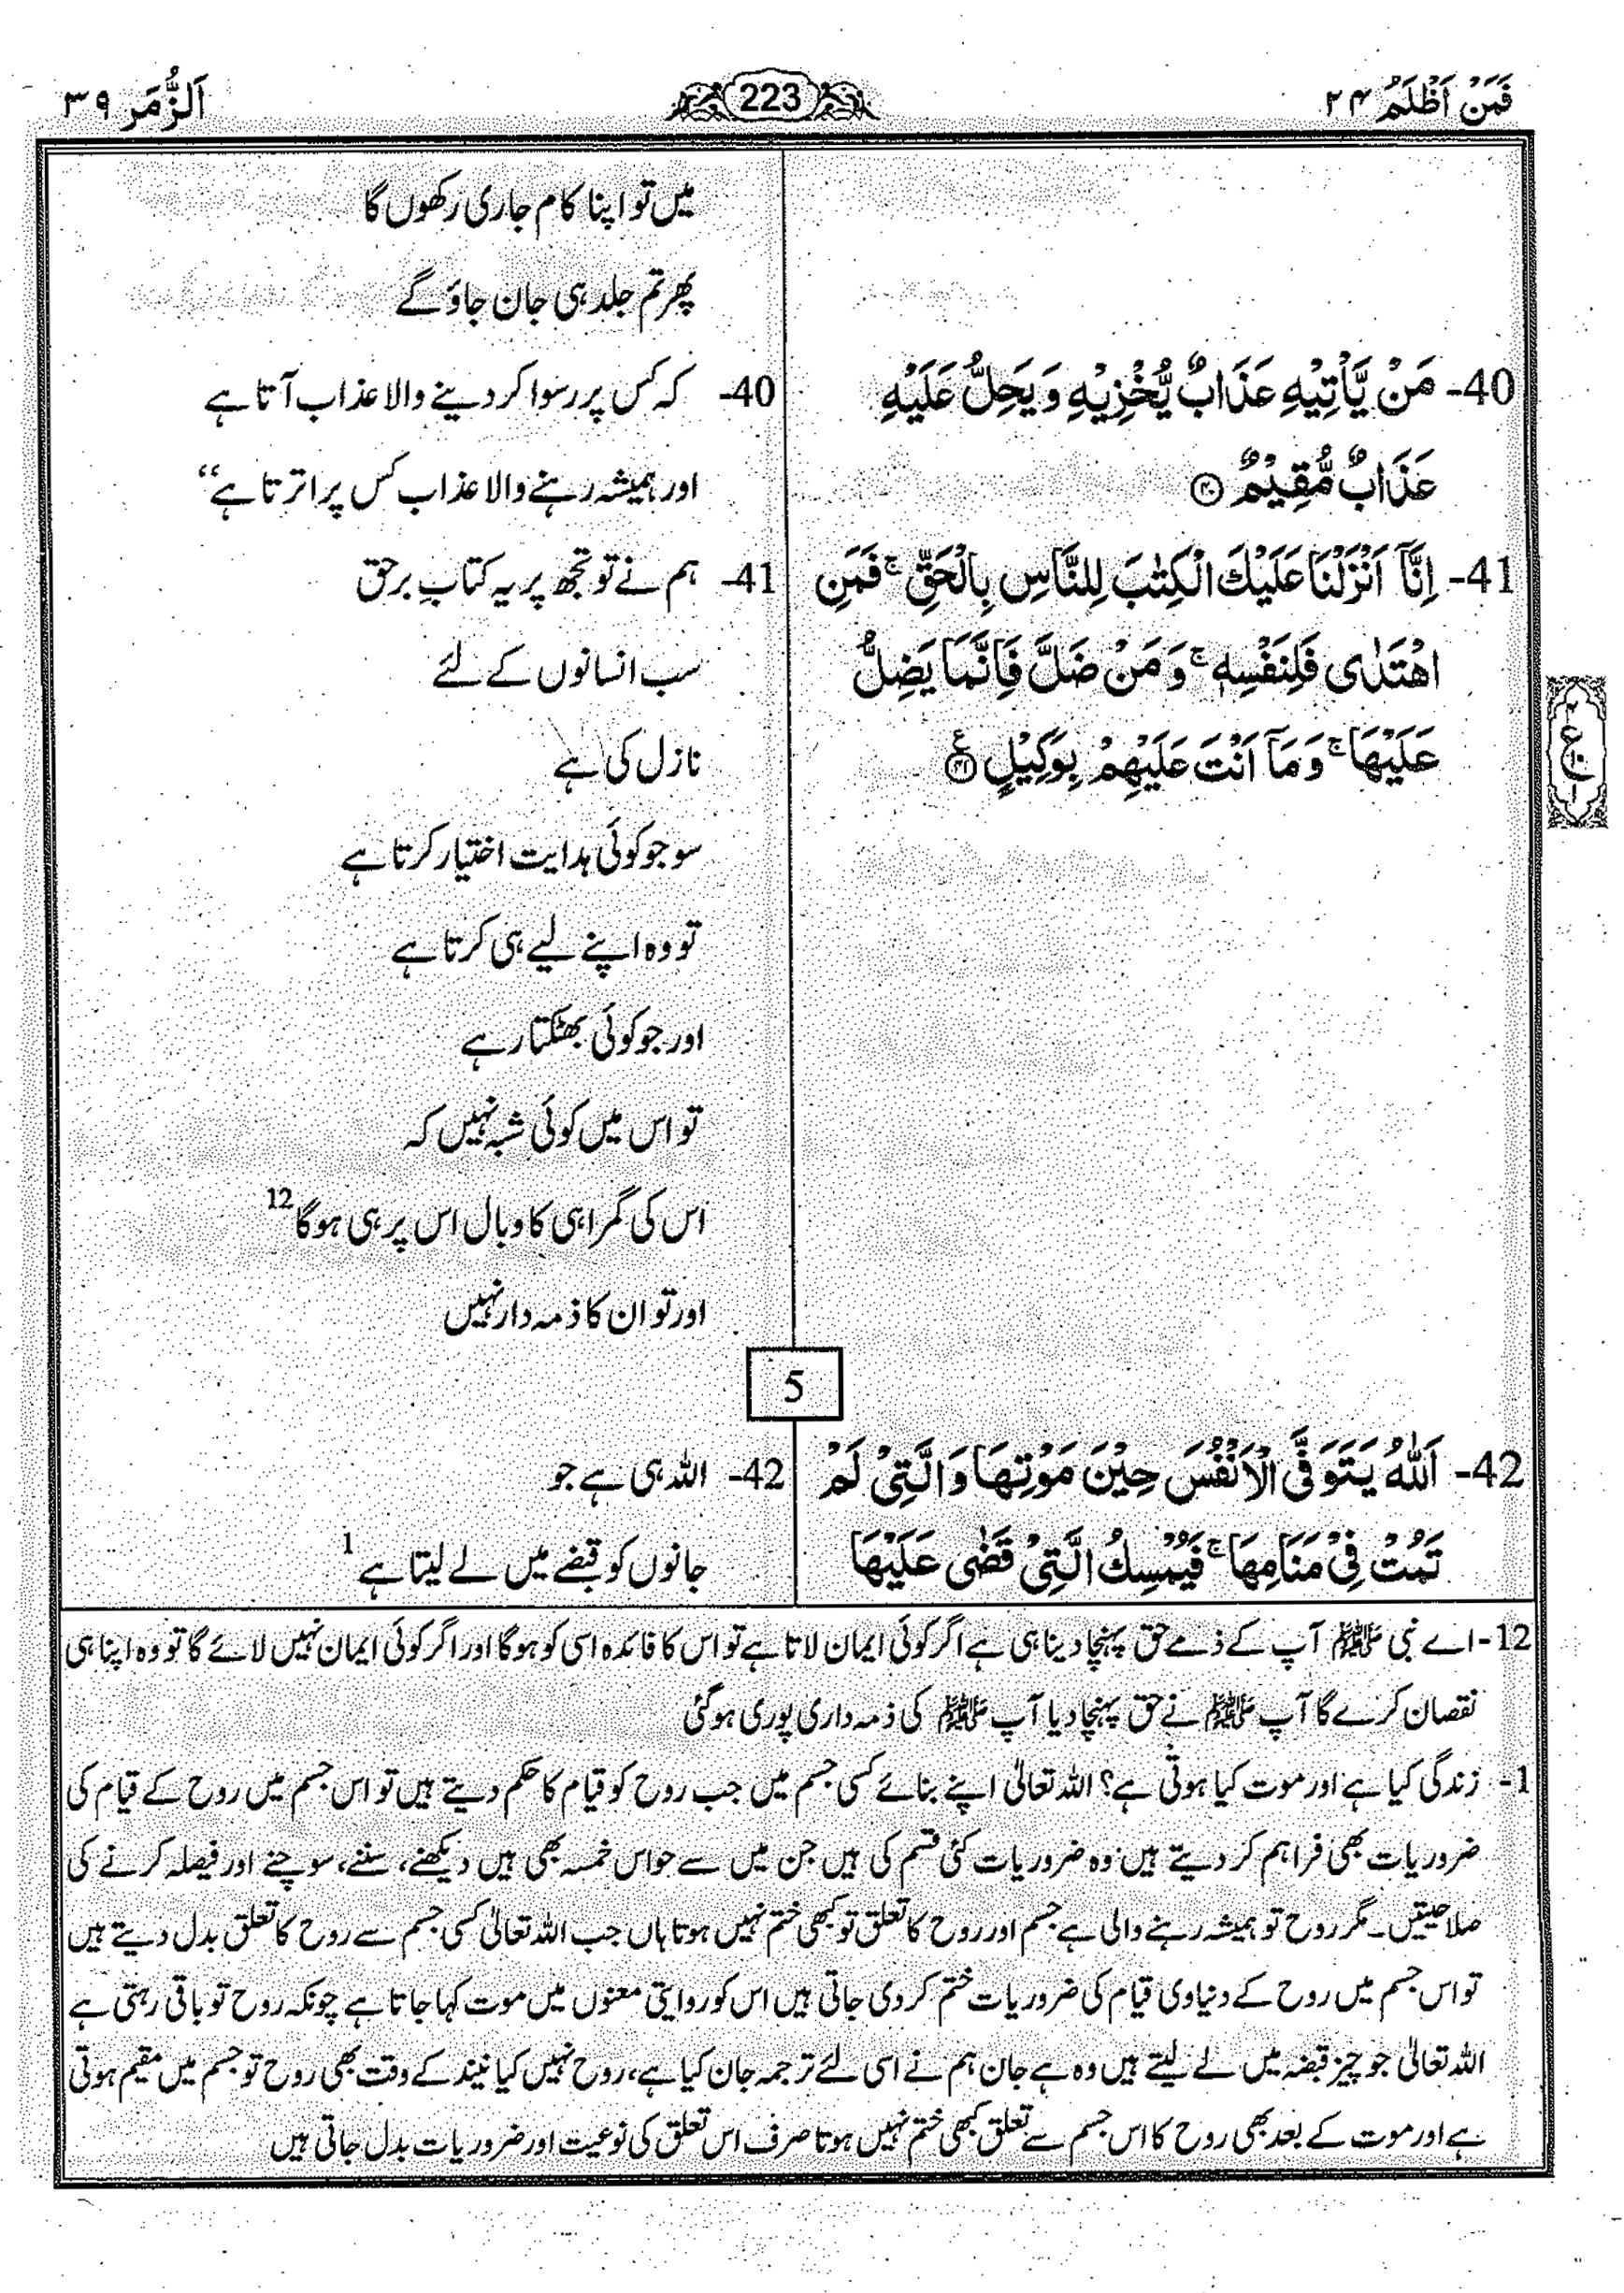 فَمَنْ اَظْلَمُ ۲۴
223
اَلزُّمَر ۳۹
میں تو اپنا کام جاری رکھوں گا
پھر تم جلد ہی جان جاؤ گے
40- مَنْ يَّاْتِيْهِ عَذَابٌ يُّخْزِيْهِ وَيَحِلُّ عَلَيْهِ
عَذَابٌ مُّقِيْمٌ ۴۰
40- کہ کس پر رسوا کر دینے والا عذاب آتا ہے
اور ہمیشہ رہنے والا عذاب کس پر اترتا ہے“
41- اِنَّاۤ اَنْزَلْنَا عَلَيْكَ الْكِتٰبَ لِلنَّاسِ بِالْحَقِّ ۚ فَمَنِ
اهْتَدٰى فَلِنَفْسِهٖ ۚ وَ مَنْ ضَلَّ فَاِنَّمَا يَضِلُّ
عَلَيْهَا ۚ وَ مَاۤ اَنْتَ عَلَيْهِمْ بِوَكِيْلٍ ۴۱ ع
41- ہم نے تو تجھ پر یہ کتابِ برحق
سب انسانوں کے لئے
نازل کی ہے
سو جو کوئی ہدایت اختیار کرتا ہے
تو وہ اپنے لیے ہی کرتا ہے
اور جو کوئی بھٹکتا رہے
تو اس میں کوئی شبہ نہیں کہ
اس کی گمراہی کا وبال اس پر ہی ہوگا 12
اور تو ان کا ذمہ دار نہیں
ع
5
42- اَللّٰهُ يَتَوَفَّى الْاَنْفُسَ حِيْنَ مَوْتِهَا وَالَّتِيْ لَمْ
تَمُتْ فِيْ مَنَامِهَا ۚ فَيُمْسِكُ الَّتِيْ قَضٰى عَلَيْهَا
42- اللہ ہی ہے جو
جانوں کو قبضے میں لے لیتا ہے 1
12- اے نبی ﷺ آپ کے ذمے حق پہنچا دینا ہی ہے اگر کوئی ایمان لاتا ہے تو اس کا فائدہ اسی کو ہوگا اور اگر کوئی ایمان نہیں لائے گا تو وہ اپنا ہی
نقصان کرے گا آپ ﷺ نے حق پہنچا دیا آپ ﷺ کی ذمہ داری پوری ہوگئی
1- زندگی کیا ہے اور موت کیا ہوتی ہے؟ اللہ تعالیٰ اپنے بنائے کسی جسم میں جب روح کو قیام کا حکم دیتے ہیں تو اس جسم میں روح کے قیام کی
ضروریات بھی فراہم کر دیتے ہیں وہ ضروریات کئی قسم کی ہیں جن میں سے حواس خمسہ بھی ہیں دیکھنے، سننے، سوچنے اور فیصلہ کرنے کی
صلاحیتیں۔ مگر روح تو ہمیشہ رہنے والی ہے جسم اور روح کا تعلق تو کبھی ختم نہیں ہوتا ہاں جب اللہ تعالیٰ کسی جسم سے روح کا تعلق بدل دیتے ہیں
تو اس جسم میں روح کے دنیاوی قیام کی ضروریات ختم کر دی جاتی ہیں اس کو روایتی معنوں میں موت کہا جاتا ہے چونکہ روح تو باقی رہتی ہے
اللہ تعالیٰ جو چیز قبضہ میں لے لیتے ہیں وہ ہے جان ہم نے اسی لئے ترجمہ جان کیا ہے، روح نہیں کیا نیند کے وقت بھی روح تو جسم میں مقیم ہوتی
ہے اور موت کے بعد بھی روح کا اس جسم سے تعلق کبھی ختم نہیں ہوتا صرف اس تعلق کی نوعیت اور ضروریات بدل جاتی ہیں